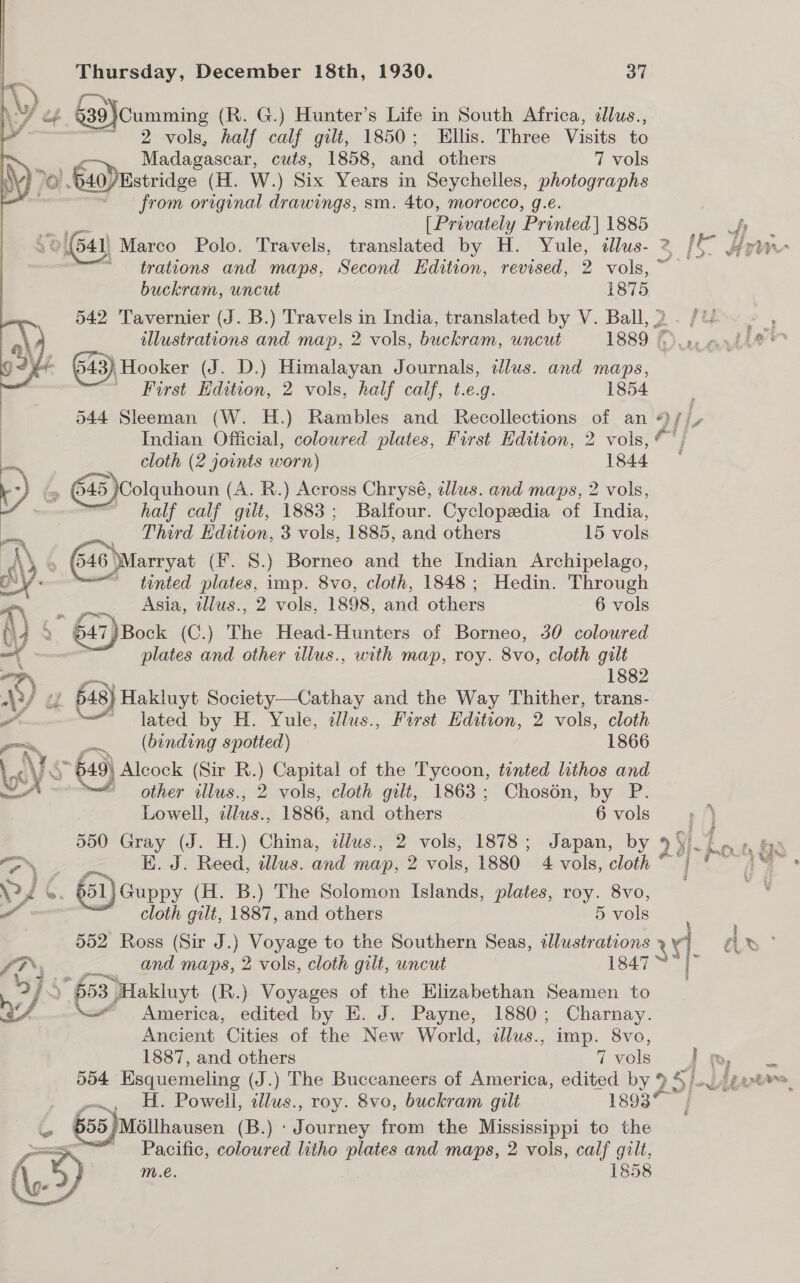 Thursday, December 18th, 1930. 37
639 Cumming (R. G.) Hunter's Life in South Africa, illus.,
2 vols, half calf gilt, 1850; Ellis. Three Visits to
Madagascar, cuts, 1858, and others 7 vols
640 Estridge (H. W.) Six Years in Seychelles, photographs
from original drawings, sm. 4to, morocco, g.e.
[Privately Printed] 1885
541 Marco Polo. Travels, translated by H. Yule, illus-
trations and maps, Second Edition, revised, 2 vols,
buckram, uncut 1875
542 Tavernier (J. B.) Travels in India, translated by V. Ball,
illustrations and map, 2 vols, buckram, uncut 1889
543 Hooker (J. D.) Himalayan Journals, illus. and maps,
First Edition, 2 vols, half calf, t.e.g. 1854
544 Sleeman (W. H.) Rambles and Recollections of an
Indian Official, coloured plates, First Edition, 2 vols,
cloth (2 joints worn) 1844
545 Colquhoun (A. R.) Across Chrysé, illus. and maps, 2 vols,
half calf gilt, 1883; Balfour. Cyclopædia of India,
Third Edition, 3 vols, 1885, and others 15 vols
546 Marryat (F. S.) Borneo and the Indian Archipelago,
tinted plates, imp. 8vo, cloth, 1848; Hedin. Through
Asia, illus., 2 vols, 1898, and others 6 vols
547 Bock (C.) The Head-Hunters of Borneo, 30 coloured
plates and other illus., with map, roy. 8vo, cloth gilt
1882
548 Hakluyt Society—Cathay and the Way Thither, trans-
lated by H. Yule, illus., First Edition, 2 vols, cloth
(binding spotted) 1866
549 Alcock (Sir R.) Capital of the Tycoon, tinted lithos and
other illus., 2 vols, cloth gilt, 1863; Chosön, by P.
Lowell, illus., 1886, and others 6 vols
550 Gray (J. H.) China, illus., 2 vols, 1878; Japan, by
E. J. Reed, illus. and map, 2 vols, 1880 4 vols, cloth
551 Guppy (H. B.) The Solomon Islands, plates, roy. 8vo,
cloth gilt, 1887, and others 5 vols
552 Ross (Sir J.) Voyage to the Southern Seas, illustrations
and maps, 2 vols, cloth gilt, uncut 1847
553 Hakluyt (R.) Voyages of the Elizabethan Seamen to
America, edited by E. J. Payne, 1880; Charnay.
Ancient Cities of the New World, illus., imp. 8vo,
1887, and others 7 vols
554 Esquemeling (J.) The Buccaneers of America, edited by
H. Powell, illus., roy. 8vo, buckram gilt 1893
555 Möllhausen (B.) Journey from the Mississippi to the
Pacific, coloured litho plates and maps, 2 vols, calf gilt,
m.e. 1858